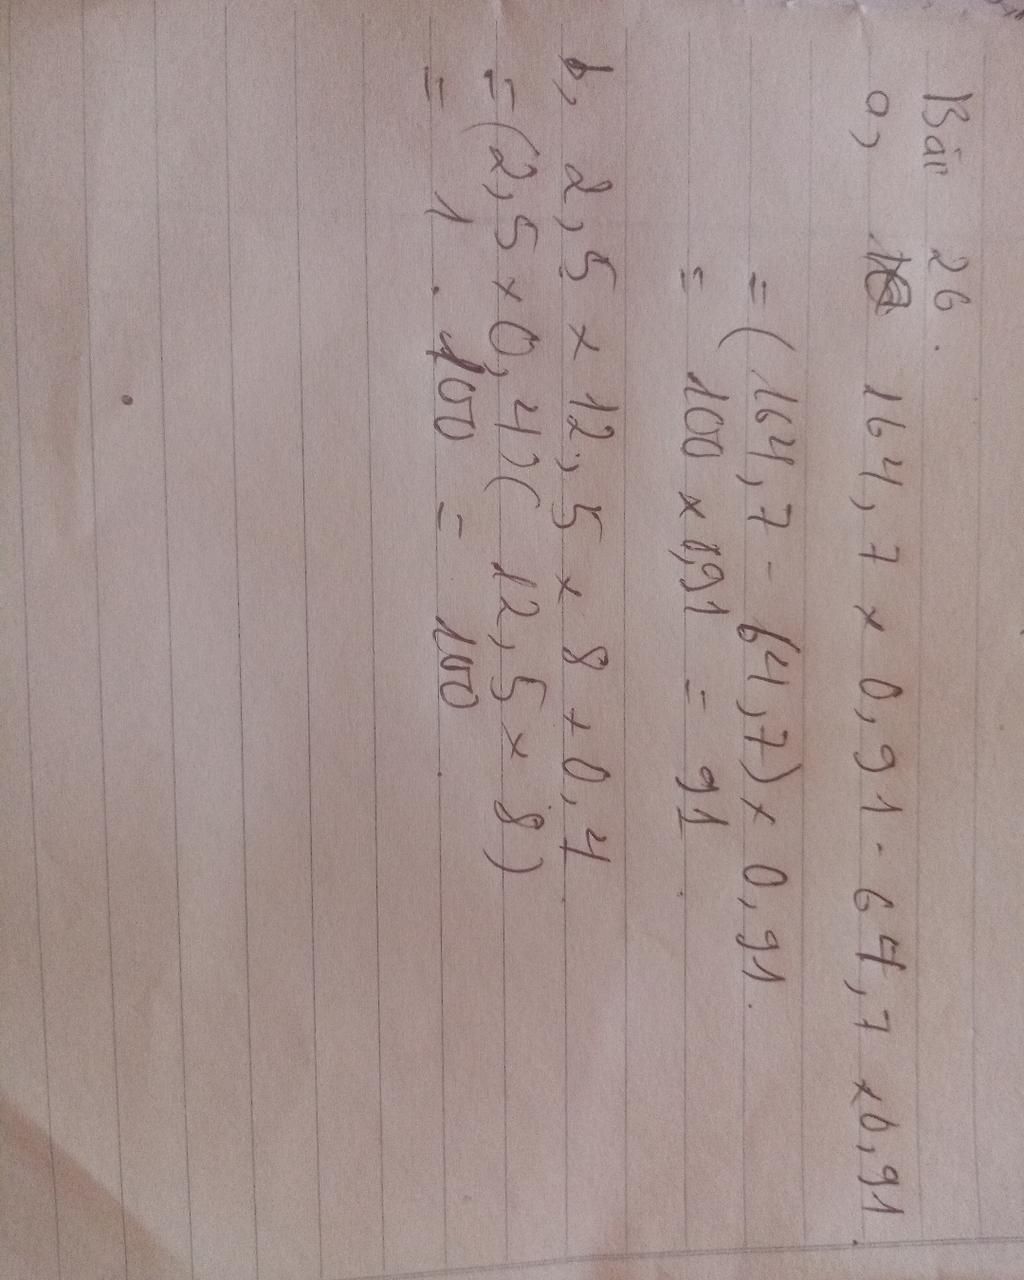 Bài 26.
a, 164,7 x 0,91 - 64,7 x 0,91
= (164,7 - 64,7) x 0,91.
= 100 x 0,91 = 91.
b, 2,5 x 12,5 x 8 x 0,4
= (2,5 x 0,4)(12,5 x 8)
= 1 . 100 = 100